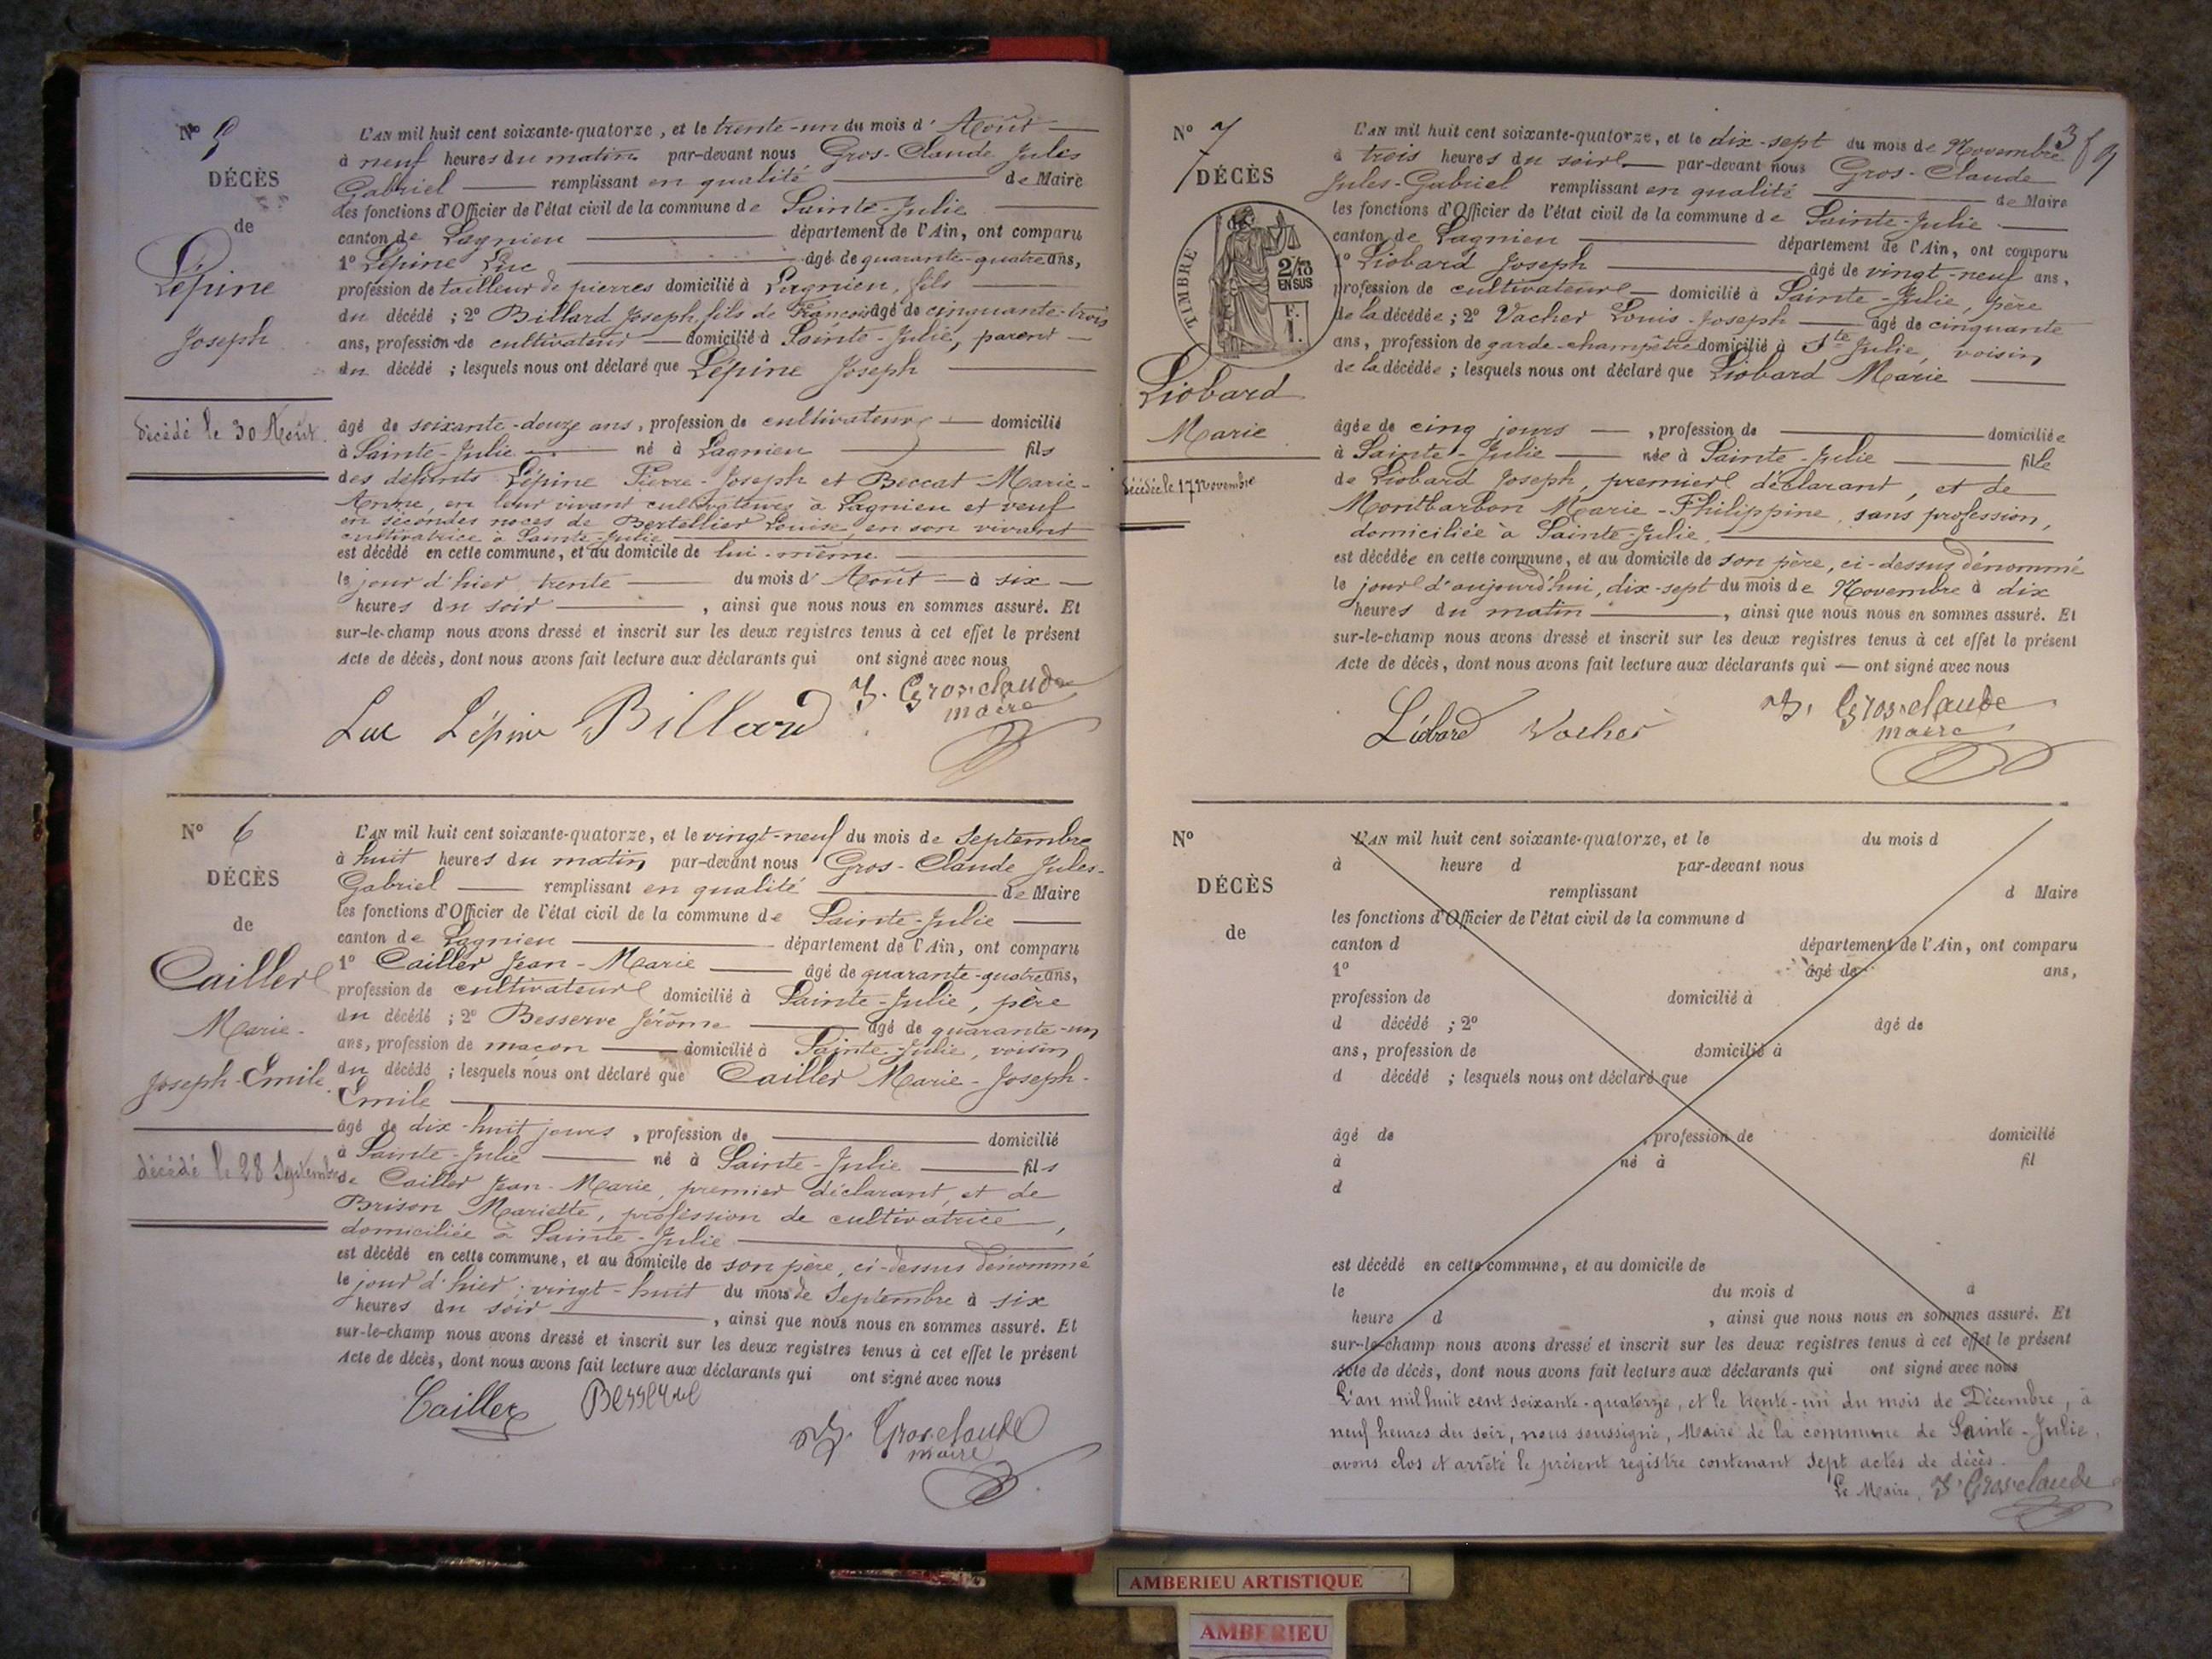 N° 5
DÉCÈS
de
Lépine
Joseph
décédé le 30 Août.
L'AN mil huit cent soixante-quatorze, et le trente-un du mois d' Août
à neuf heures du matin par-devant nous Gros-Claude Jules
Gabriel remplissant en qualité de Maire
les fonctions d'Officier de l'état civil de la commune de Sainte-Julie
canton de Lagnieu département de l'Ain, ont comparu
1° Lépine Luc âgé de quarante-quatre ans,
profession de tailleur de pierres domicilié à Lagnieu, fils
du décédé ; 2° Billard Joseph, fils de François âgé de cinquante-trois
ans, profession de cultivateur domicilié à Sainte-Julie, parent
du décédé ; lesquels nous ont déclaré que Lépine Joseph
âgé de soixante-douze ans, profession de cultivateur domicilié
à Sainte-Julie né à Lagnieu fils
des défunts Lépine Pierre-Joseph et Beccat Marie-
Anne, en leur vivant cultivateurs à Lagnieu et veuf
en secondes noces de Bertellier Louise, en son vivant
cultivatrice à Sainte-Julie
est décédé en cette commune, et au domicile de lui-même
le jour d'hier, trente du mois d' Août à six
heures du soir , ainsi que nous nous en sommes assuré. Et
sur-le-champ nous avons dressé et inscrit sur les deux registres tenus à cet effet le présent
Acte de décès, dont nous avons fait lecture aux déclarants qui ont signé avec nous
Luc Lépine Billard J. Grosclaude
maire
N° 6
DÉCÈS
de
Cailler
Marie-
Joseph-Emile.
décédé le 28 Septembre
L'AN mil huit cent soixante-quatorze, et le vingt-neuf du mois de Septembre
à huit heures du matin par-devant nous Gros-Claude Jules-
Gabriel remplissant en qualité de Maire
les fonctions d'Officier de l'état civil de la commune de Sainte-Julie
canton de Lagnieu département de l'Ain, ont comparu
1° Cailler Jean-Marie âgé de quarante-quatre ans,
profession de cultivateur domicilié à Sainte-Julie, père
du décédé ; 2° Besserve Jérôme âgé de quarante-un
ans, profession de maçon domicilié à Sainte-Julie, voisin
du décédé ; lesquels nous ont déclaré que Cailler Marie-Joseph-
Emile
âgé de dix-huit jours , profession de domicilié
à Sainte-Julie né à Sainte-Julie fils
de Cailler Jean-Marie, premier déclarant, et de
Brison Mariette, profession de cultivatrice,
domiciliée à Sainte-Julie
est décédé en cette commune, et au domicile de son père, ci-dessus dénommé
le jour d'hier, vingt-huit du mois de Septembre à six
heures du soir , ainsi que nous nous en sommes assuré. Et
sur-le-champ nous avons dressé et inscrit sur les deux registres tenus à cet effet le présent
Acte de décès, dont nous avons fait lecture aux déclarants qui ont signé avec nous
Cailler Besserve
J. Grosclaude
maire
359
N° 7
DÉCÈS
TIMBRE
2/10
EN SUS
F.
1.
Liobard
Marie
décédée le 17 Novembre
L'AN mil huit cent soixante-quatorze, et le dix-sept du mois de Novembre
à trois heures du soir par-devant nous Gros-Claude
Jules-Gabriel remplissant en qualité de Maire
les fonctions d'Officier de l'état civil de la commune de Sainte-Julie
canton de Lagnieu département de l'Ain, ont comparu
1° Liobard Joseph âgé de vingt-neuf ans,
profession de cultivateur domicilié à Sainte-Julie, père
de la décédée ; 2° Vacher Louis-Joseph âgé de cinquante
ans, profession de garde-champêtre domicilié à Ste Julie, voisin
de la décédée ; lesquels nous ont déclaré que Liobard Marie
âgée de cinq jours , profession de domiciliée
à Sainte-Julie née à Sainte-Julie fille
de Liobard Joseph, premier déclarant, et de
Montbarbon Marie-Philippine, sans profession,
domiciliée à Sainte-Julie
est décédée en cette commune, et au domicile de son père, ci-dessus dénommé
le jour d'aujourd'hui, dix-sept du mois de Novembre à dix
heures du matin , ainsi que nous nous en sommes assuré. Et
sur-le-champ nous avons dressé et inscrit sur les deux registres tenus à cet effet le présent
Acte de décès, dont nous avons fait lecture aux déclarants qui — ont signé avec nous
Liobard Vacher J. Grosclaude
maire
N°
DÉCÈS
de
L'AN mil huit cent soixante-quatorze, et le du mois d
à heure d par-devant nous
remplissant d Maire
les fonctions d'Officier de l'état civil de la commune d
canton d département de l'Ain, ont comparu
1° âgé de ans,
profession de domicilié à
d décédé ; 2° âgé de
ans, profession de domicilié à
d décédé ; lesquels nous ont déclaré que
âgé de , profession de domicilié
à né à fil
d
est décédé en cette commune, et au domicile de
le du mois d à
heure d , ainsi que nous nous en sommes assuré. Et
sur-le-champ nous avons dressé et inscrit sur les deux registres tenus à cet effet le présent
Acte de décès, dont nous avons fait lecture aux déclarants qui ont signé avec nous
L'an mil huit cent soixante-quatorze, et le trente-un du mois de Décembre, à
neuf heures du soir, nous soussigné, Maire de la commune de Sainte-Julie,
avons clos et arrêté le présent registre contenant sept actes de décès.
Le Maire, J. Grosclaude
AMBERIEU ARTISTIQUE
AMBERIEU